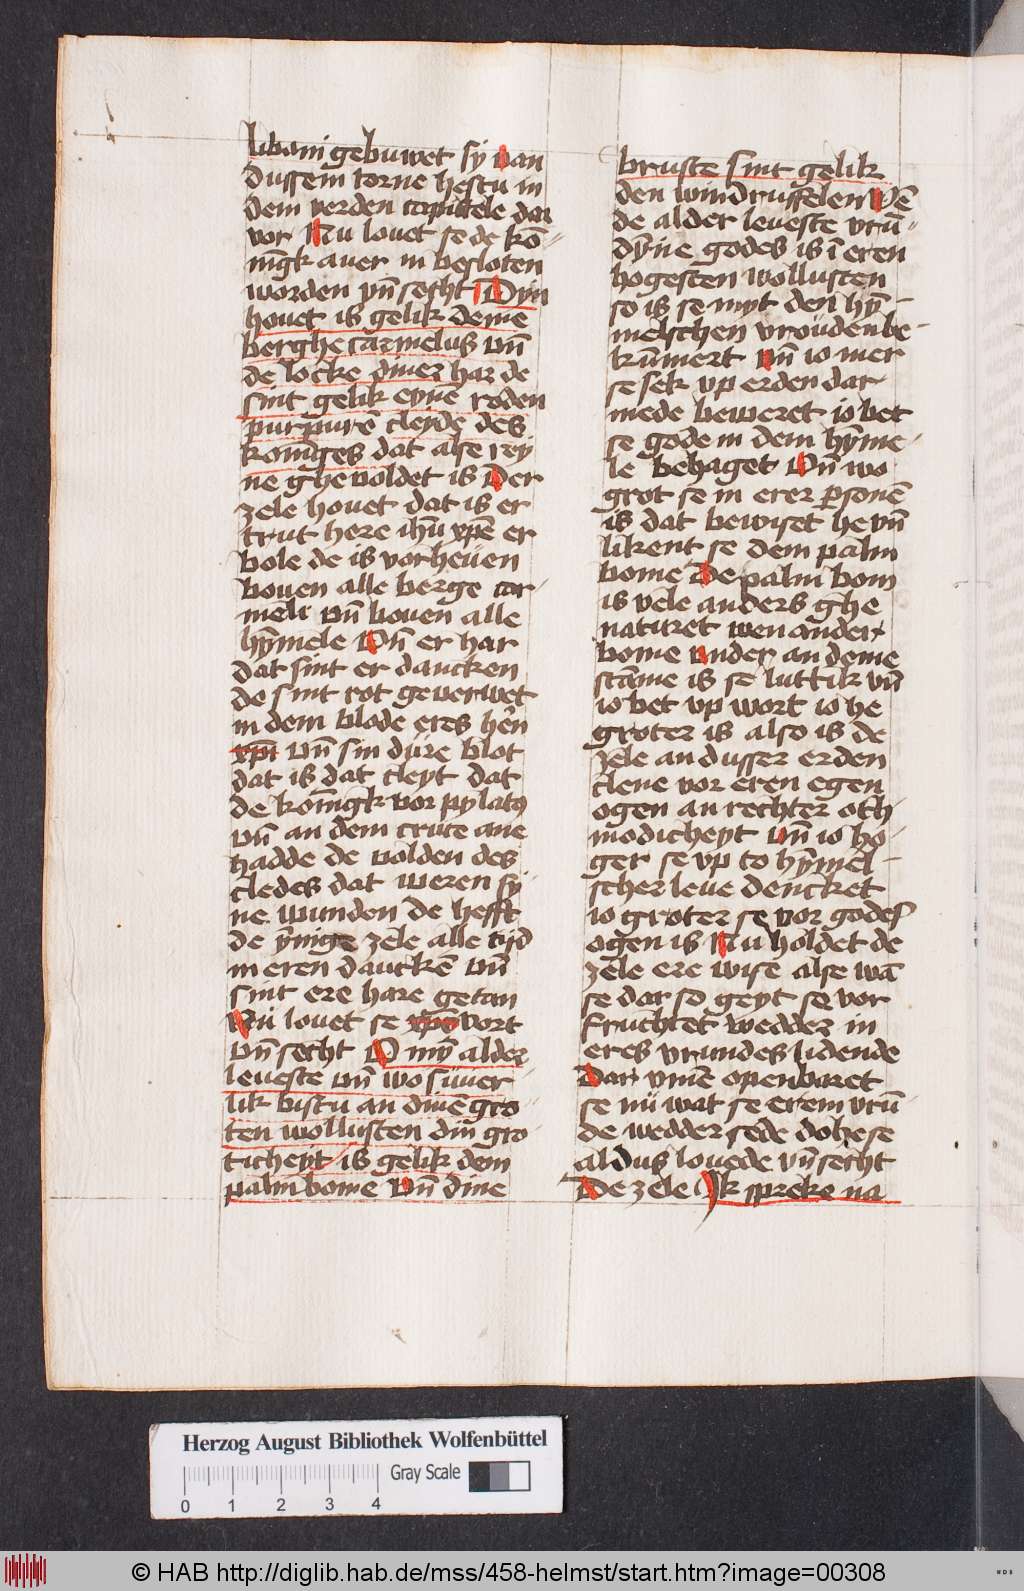 libani gebuwet sy van
dussem torne hestu in
dem verden capittele dar
vor Nu louet se de kō-
nīgk auer in besloten
worden vn̄ secht Dyn
houet is gelik deme
berghe carmelus vn̄
de locke diner har de
sint gelik eynē roden
purpurē cleyde des
konīges dat alse rey
ne ghevoldet is Der
zele houet dat is er
trut here ihū xpē er
bole de is vorheuen
bouen alle berge car-
meli vn̄ bouen alle
hȳmele Vn̄ er har
dat sint er dancken
de sint rot geuerwet
in dem blode eres hēn
xpī vn̄ sin dure blot
dat is dat cleyt dat
de konīgk vor pylato
vn̄ an dem cruce ane
hadde de volden des
cledes dat weren sy-
ne wunden de hefft
de ȳnige zele alle tijd
in eren danckē vn̄
sint ere hare getan
Nu louet se vort
vn̄ secht O mȳ alder
leueste vn̄ wo suuer-
lik bistu an dinē gro-
ten wollusten din gro-
ticheyt is gelik dem
palmbome Vn̄ dine
bruste sint gelik
den windruffelen Wē
de alder leueste vrū-
dȳne godes is ī eren
hogesten wollusten
so is se myt den hȳ-
melschen vrouden be-
kūmert Vn̄ io mer
se sek vp erden dar
mede beweret io bet
se gode in dem hȳme-
le behaget Vn̄ wo
grot se in erer personē
is dat bewiset he vn̄
likent se dem palm
bome De palm bom
is vele anders ghe
naturet wen ander
bome Vnder an deme
stāme is se luttik vn̄
io bet vp wort io he
groter is also is de
zele an dusser erden
clene vor eren egen
ogen an rechter oth-
modicheyt Vn̄ io ho-
ger se vp to hȳmel-
scher leue dencket
io groter se vor godes
ogen is Nu holdet de
zele ere wise alse wā
se dar so geyt se vor
fruchtet wedder in
eres vrundes lidende
Dar vmē openbaret
se nu wat se erem vrū-
de wedder sede do he se
aldus louede vn̄ secht
De zele Ik spreke na
Herzog August Bibliothek Wolfenbüttel
Gray Scale
0 1 2 3 4
© HAB http://diglib.hab.de/mss/458-helmst/start.htm?image=00308